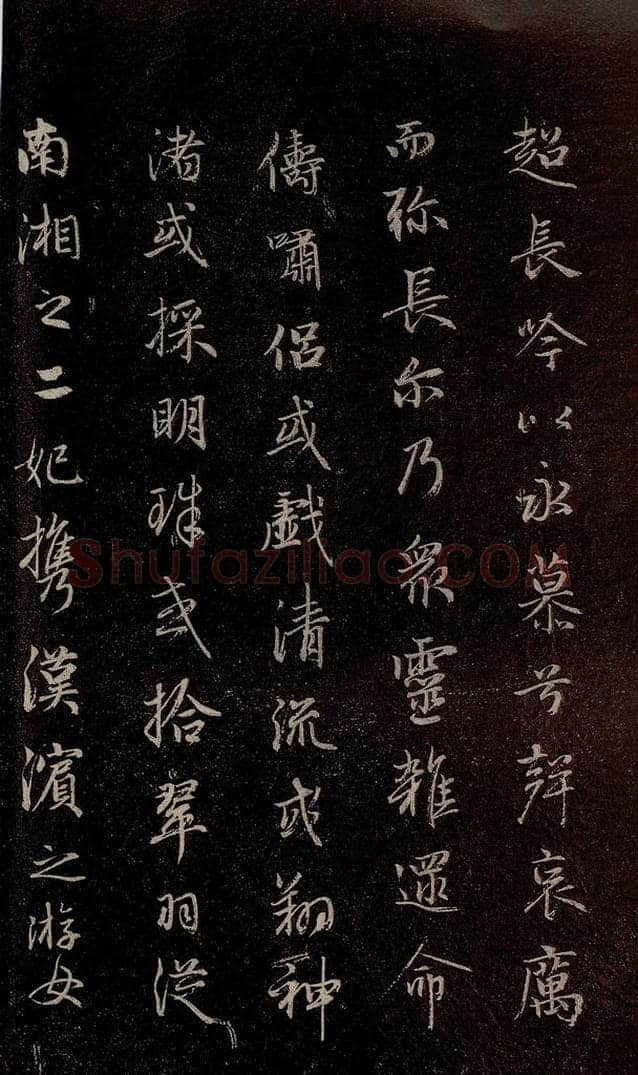 超長吟以永慕兮聲哀厲
而弥長尔乃衆靈雜遝命
儔嘯侶或戲清流或翔神
渚或採明珠或拾翠羽從
南湘之二妃攜漢濱之游女
Shufaziliao.COM